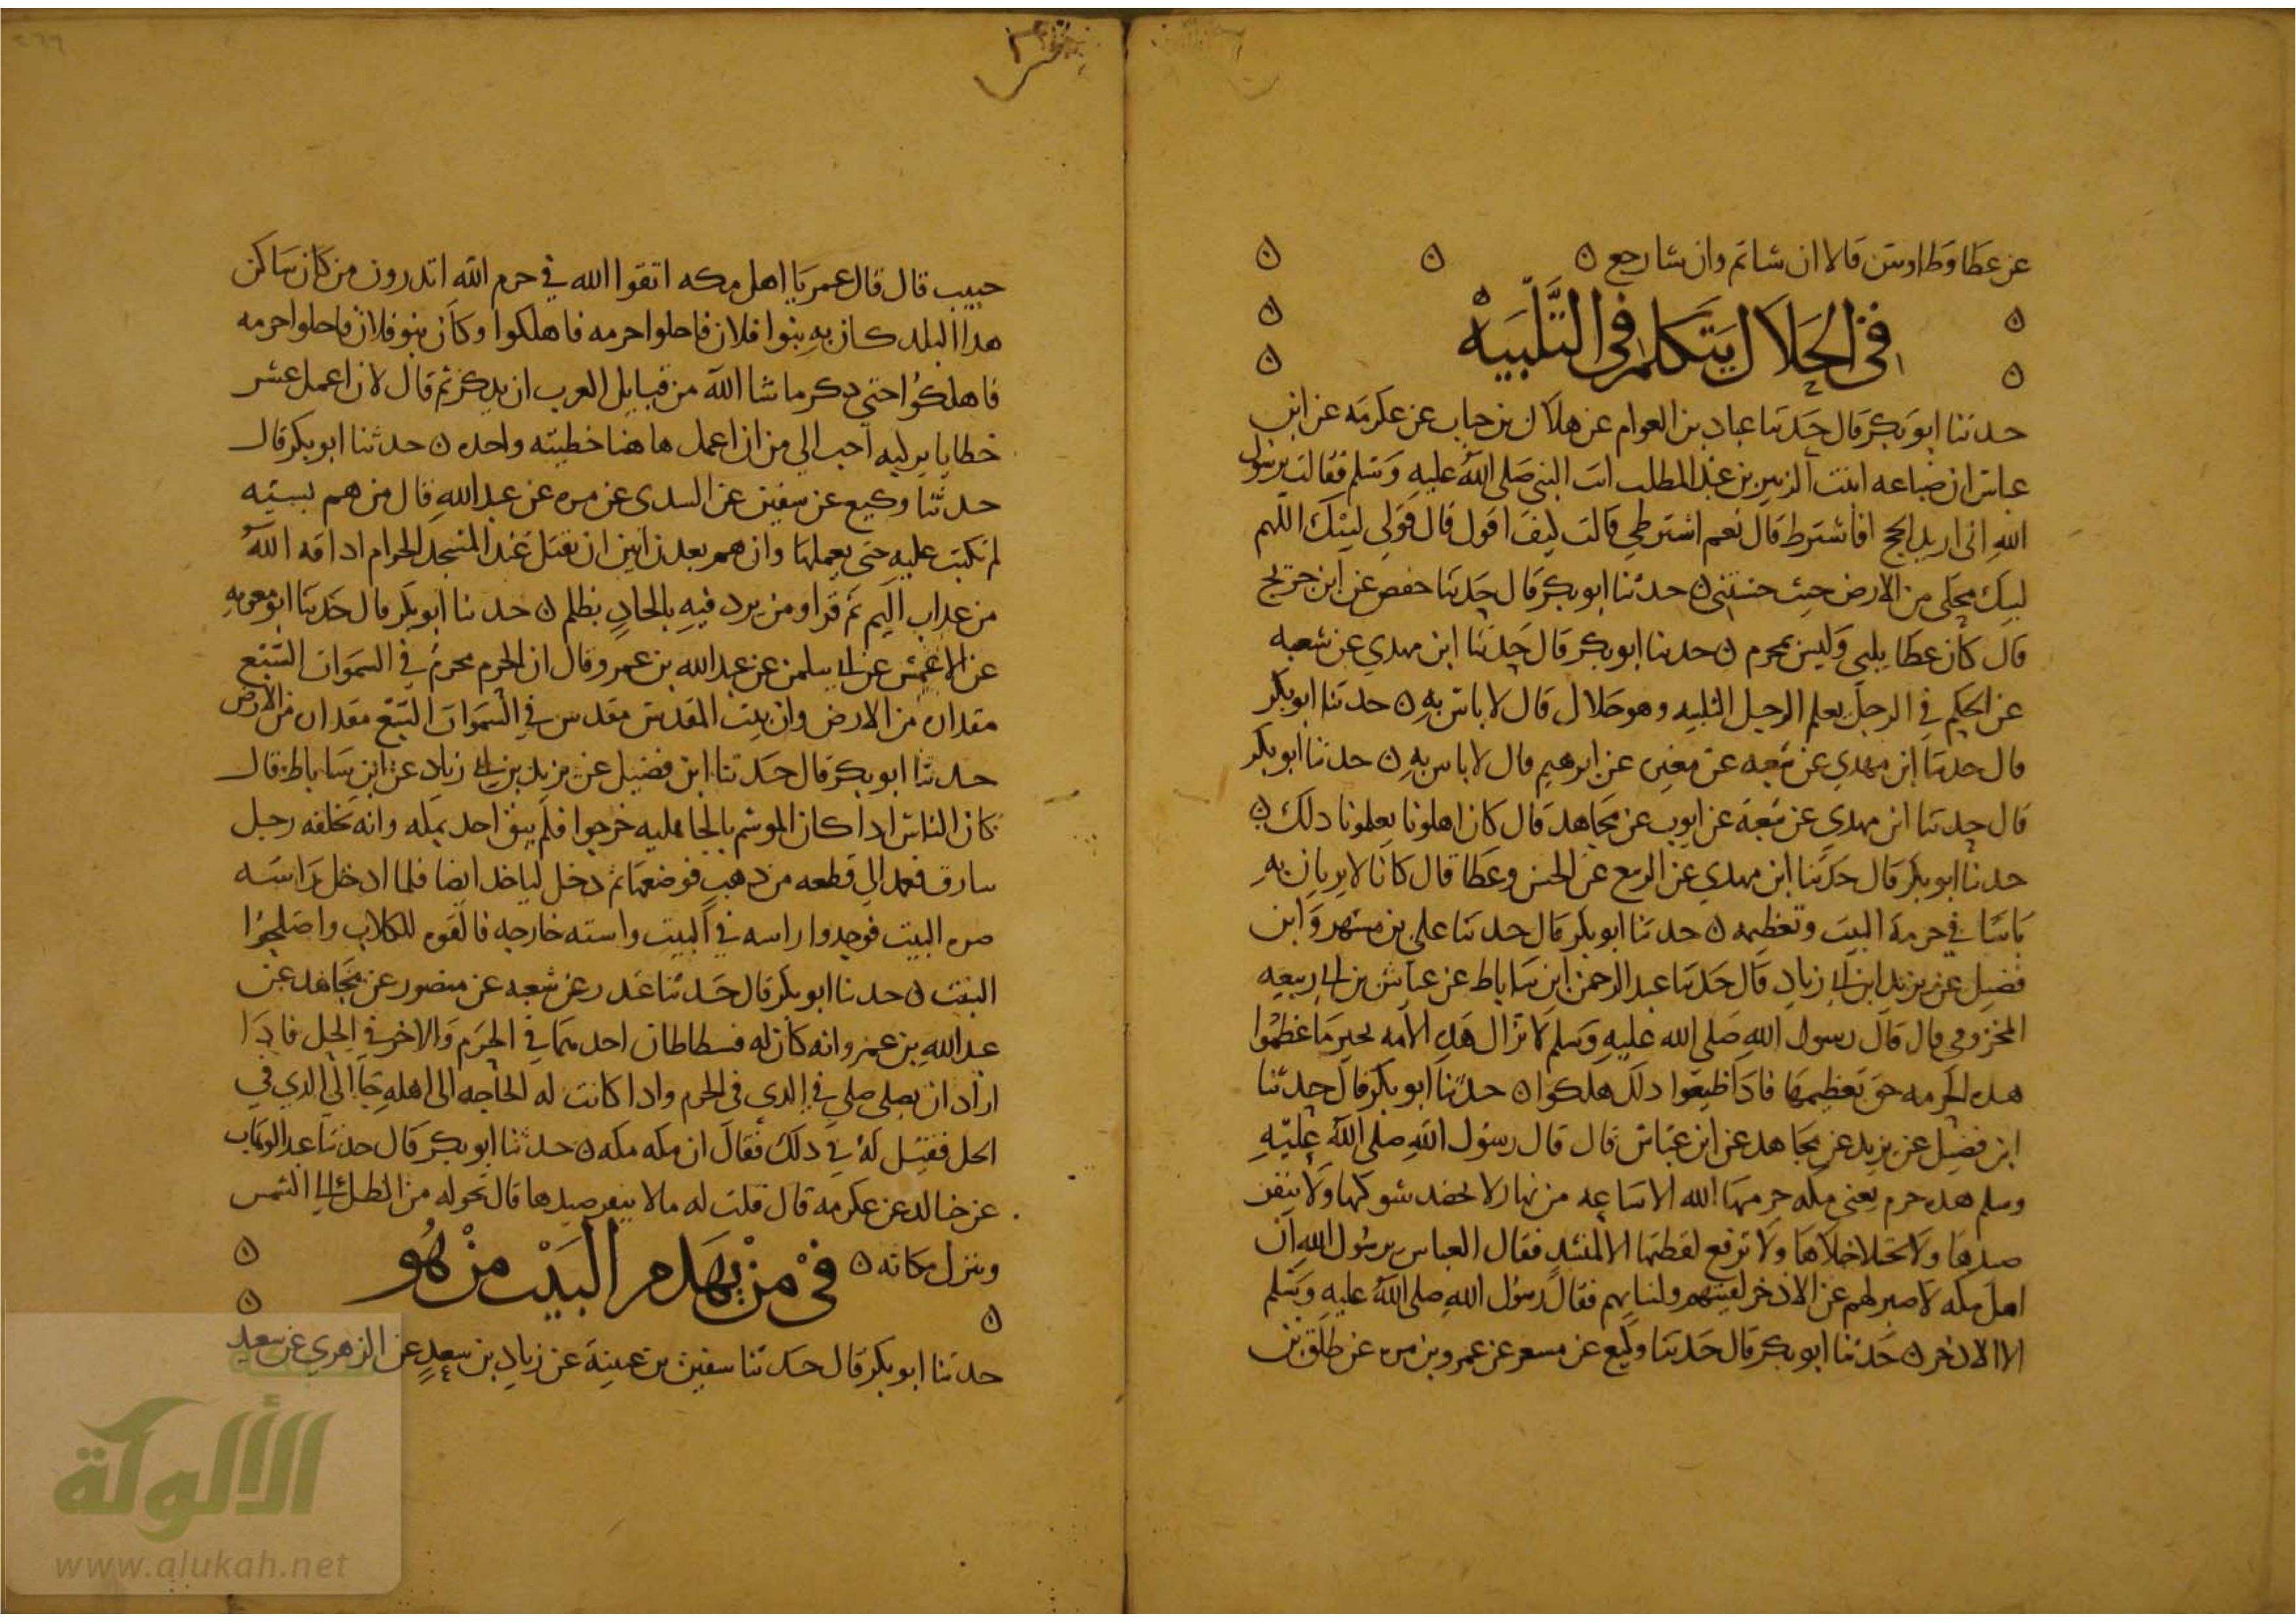 عن عطا وطاوس قالا ان شا تم وان شا رجع ں
في الحلال يتكلم في التلبيه
حدثنا ابو بكر قال حدثنا عباد بن العوام عن هلال بن خباب عن عكرمه عن ابن
عباس ان ضباعه ابنت الزبير بن عبد المطلب اتت النبي صلى الله عليه وسلم فقالت يرسول
الله اني اريد الحج افاشترط قال نعم اشترطي قالت كيف اقول قال قولي لبيك اللهم
لبيك محلي من الارض حيث حبستني ں حدثنا ابو بكر قال حدثنا حفص عن ابن جريج
قال كان عطا يلبي وليس بمحرم ں حدثنا ابو بكر قال حدثنا ابن مهدي عن شعبه
عن الحكم في الرجل يعلم الرجل التلبيه وهو حلال قال لا باس به ں حدثنا ابو بكر
قال حدثنا ابن مهدي عن شعبه عن مغيره عن ابرهيم قال لا باس به ں حدثنا ابو بكر
قال حدثنا ابن مهدي عن شعبة عن ايوب عن مجاهد قال كان اهلونا يعلمونا ذلك ں
حدثنا ابو بكر قال حدثنا ابن مهدي عن الربيع عن الحسن وعطا قال كانا لا يريان به
باسا في حرمة البيت وتعظيمه ں حدثنا ابو بكر قال حدثنا علي بن مسهر وابن
فضيل عن يزيد ابن ابي زياد قال حدثنا عبد الرحمن ابن ساباط عن عياش بن ابي ربيعه
المخزومي قال قال رسول الله صلى الله عليه وسلم لا تزال هذه الامه بخير ما عظموا
هذه الحرمه حق تعظيمها فاذا ضيعوا ذلك هلكوا ں حدثنا ابو بكر قال حدثنا
ابن فضيل عن يزيد عن مجاهد عن ابن عباس قال قال رسول الله صلى الله عليه
وسلم هذه حرم يعني مكه حرمها الله الا ساعه من نهار لا يعضد شوكها ولا ينفر
صيدها ولا يختلا خلاها ولا ترفع لقطتها الا لمنشد فقال العباس يرسول الله ان
اهل مكه لا صبر لهم عن الاذخر لقينهم ولبنايهم فقال رسول الله صلى الله عليه وسلم
الا الاذخر ں حدثنا ابو بكر قال حدثنا وكيع عن مسعر عن عمرو بن مره عن طلق بن
حبيب قال قال عمر يا اهل مكه اتقوا الله في حرم الله اتدرون من كان ساكن
هذا البلد كان به بنوا فلان فاحلوا حرمه فاهلكوا وكان بنو فلان فاحلوا حرمه
فاهلكوا حتى ذكر ما شا الله من قبايل العرب ان يذكر ثم قال لان اعمل عشر
خطايا بركبه احب الي من ان اعمل هاهنا خطيئه واحده ں حدثنا ابو بكر قال
حدثنا وكيع عن سفين عن السدي عن مره عن عبد الله قال من هم بسيئه
لم تكتب عليه حتى يعملها وان هم بعدن ابين ان يقتل عند المسجد الحرام اذاقه الله
من عذاب اليم ثم قرا ومن يرد فيه بالحاد بظلم ں حدثنا ابو بكر قال حدثنا ابو معويه
عن الاعمش عن ابي سلمن عن عبد الله بن عمرو قال ان الحرم محرم في السموات السبع
مقداره من الارض وان بيت المقدس مقدس في السموات السبع مقداره من الارض
حدثنا ابو بكر قال حدثنا ابن فضيل عن يزيد بن ابي زياد عن ابن ساباط قال
كان الناس اذا كان الموسم بالجاهليه خرجوا فلم يبق احد بمكه وانه تخلفه رجل
سارق فعمد الي قطعه من ذهب فوضعها ثم دخل لياخذ ايضا فلما ادخل راسه
صره البيت فوجدوا راسه في البيت واسته خارجه فالقوه للكلاب واصلحوا
البيت ں حدثنا ابو بكر قال حدثنا غندر عن شعبه عن منصور عن مجاهد عن
عبد الله بن عمرو انه كان له فسطاطان احدهما في الحرم والاخر في الحل فاذا
اراد ان يصلي صلي في الذي في الحرم واذا كانت له الحاجه الى اهله جا الي الذي في
الحل فقيل له في ذلك فقال ان مكه مكه ں حدثنا ابو بكر قال حدثنا عبد الوهاب
عن خالد عن عكرمه قال قلت له ما لا ينفر صيدها قال تحوله من الظل الي الشمس
وتنزل مكانه ں في من يهدم البيت من هو
حدثنا ابو بكر قال حدثنا سفين بن عيينة عن زياد بن سعد عن الزهري عن سعيد
الألوكة
www.alukah.net